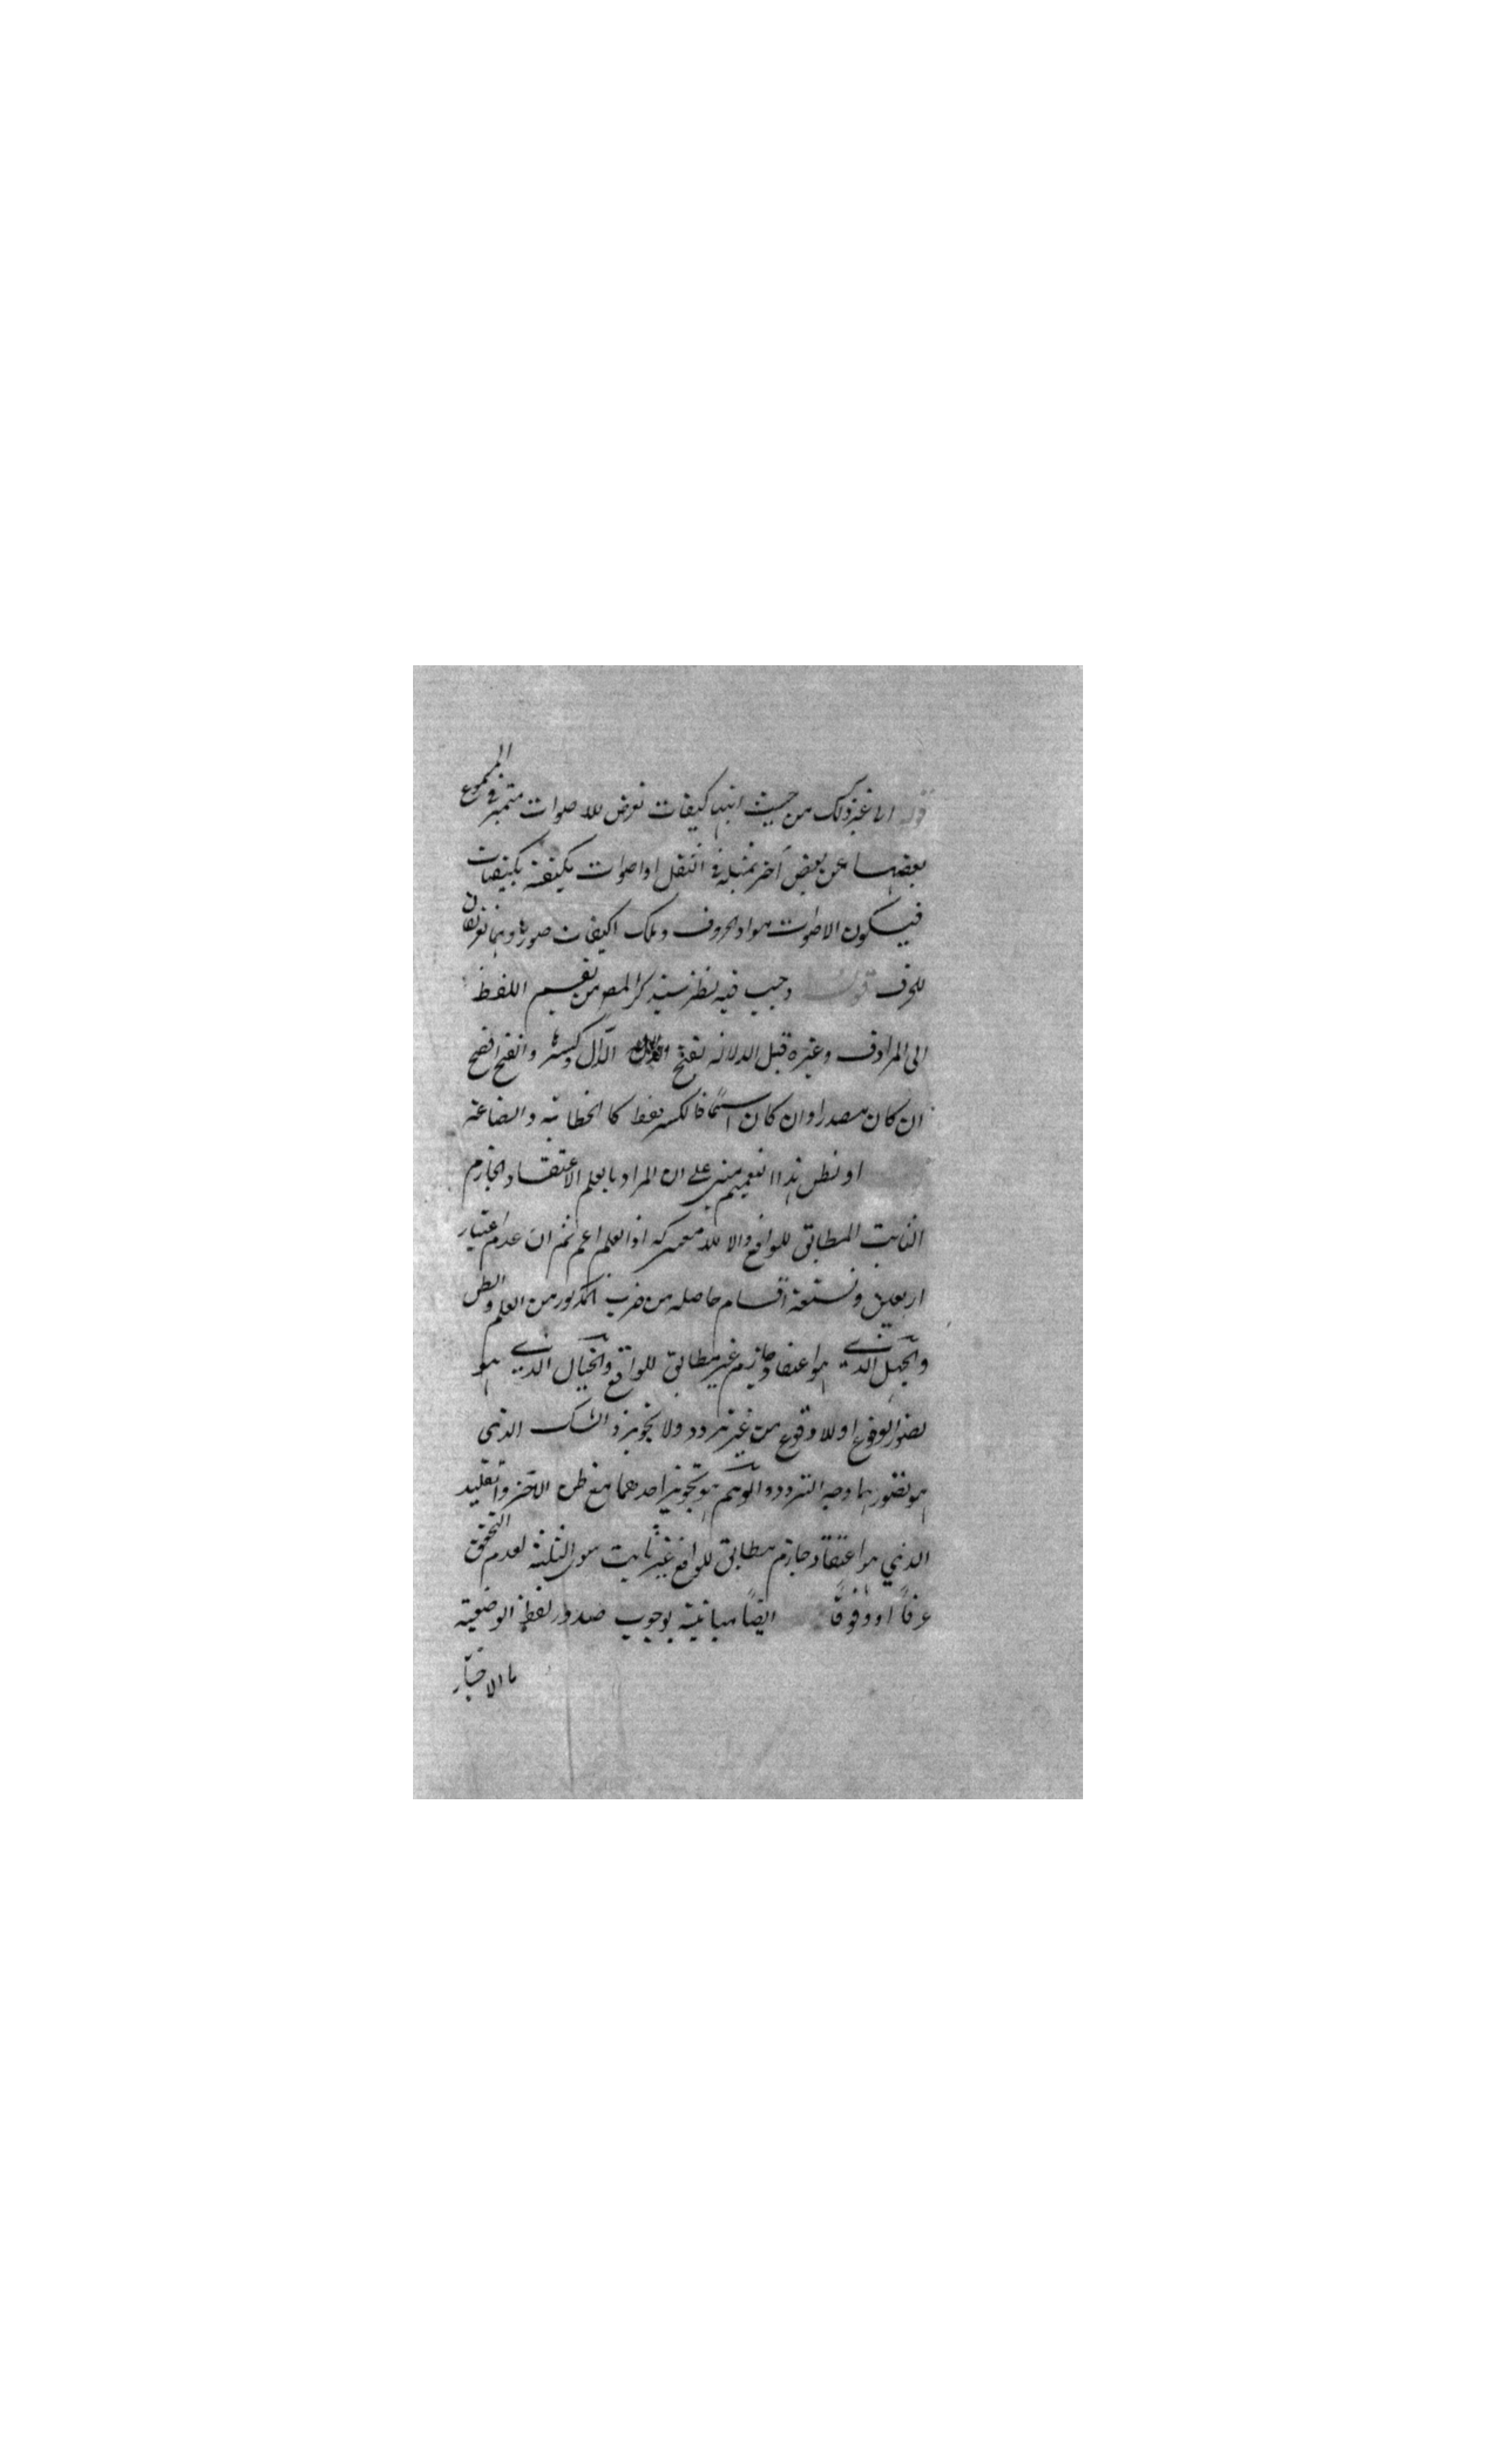 قوله الى غير ذلك من حيث انها كيفيات تعرض للاصوات متميز في المسموع
بعضها عن بعض آخر مثله في الثقل او اصوات مكيفة بكيفيات
فيكون الاصوات مواد الحروف وتلك الكيفيات صورها وهما تعرفان
للحرف قوله وحيث فيه نظر سيذكر المص من تقسيم اللفظ
الى المرادف وغيره قبل الدلالة بفتح الدال وكسرها والفتح افصح
ان كان مصدرا وان كان اسما فالكسر فقط كالخطابة والصناعة
او نظن هذا التعميم مبني على ان المراد بالعلم الاعتقاد الجازم
الثابت المطابق للواقع والا فلا اذ العلم اعم ثم ان عدم اعتبار
اربعين وتسعة اقسام حاصله من ضرب المذكور من العلم والظن
والجهل الذي هو اعتقاد جازم غير مطابق للواقع والخيال الذي هو
تصور الوقوع او اللا وقوع من غير تردد ولا تجويز والشك الذي
هو تصورهما وجه التردد والوهم هو تجويز احدهما مع ظن الآخر والتقليد
الذي هو اعتقاد جازم مطابق للواقع غير ثابت سوى الثلثة لعدم التحقق
عرفاً او وقوفاً ايضاً مباينة بوجوب صدور لفظ الوضعية
ما الاخبار